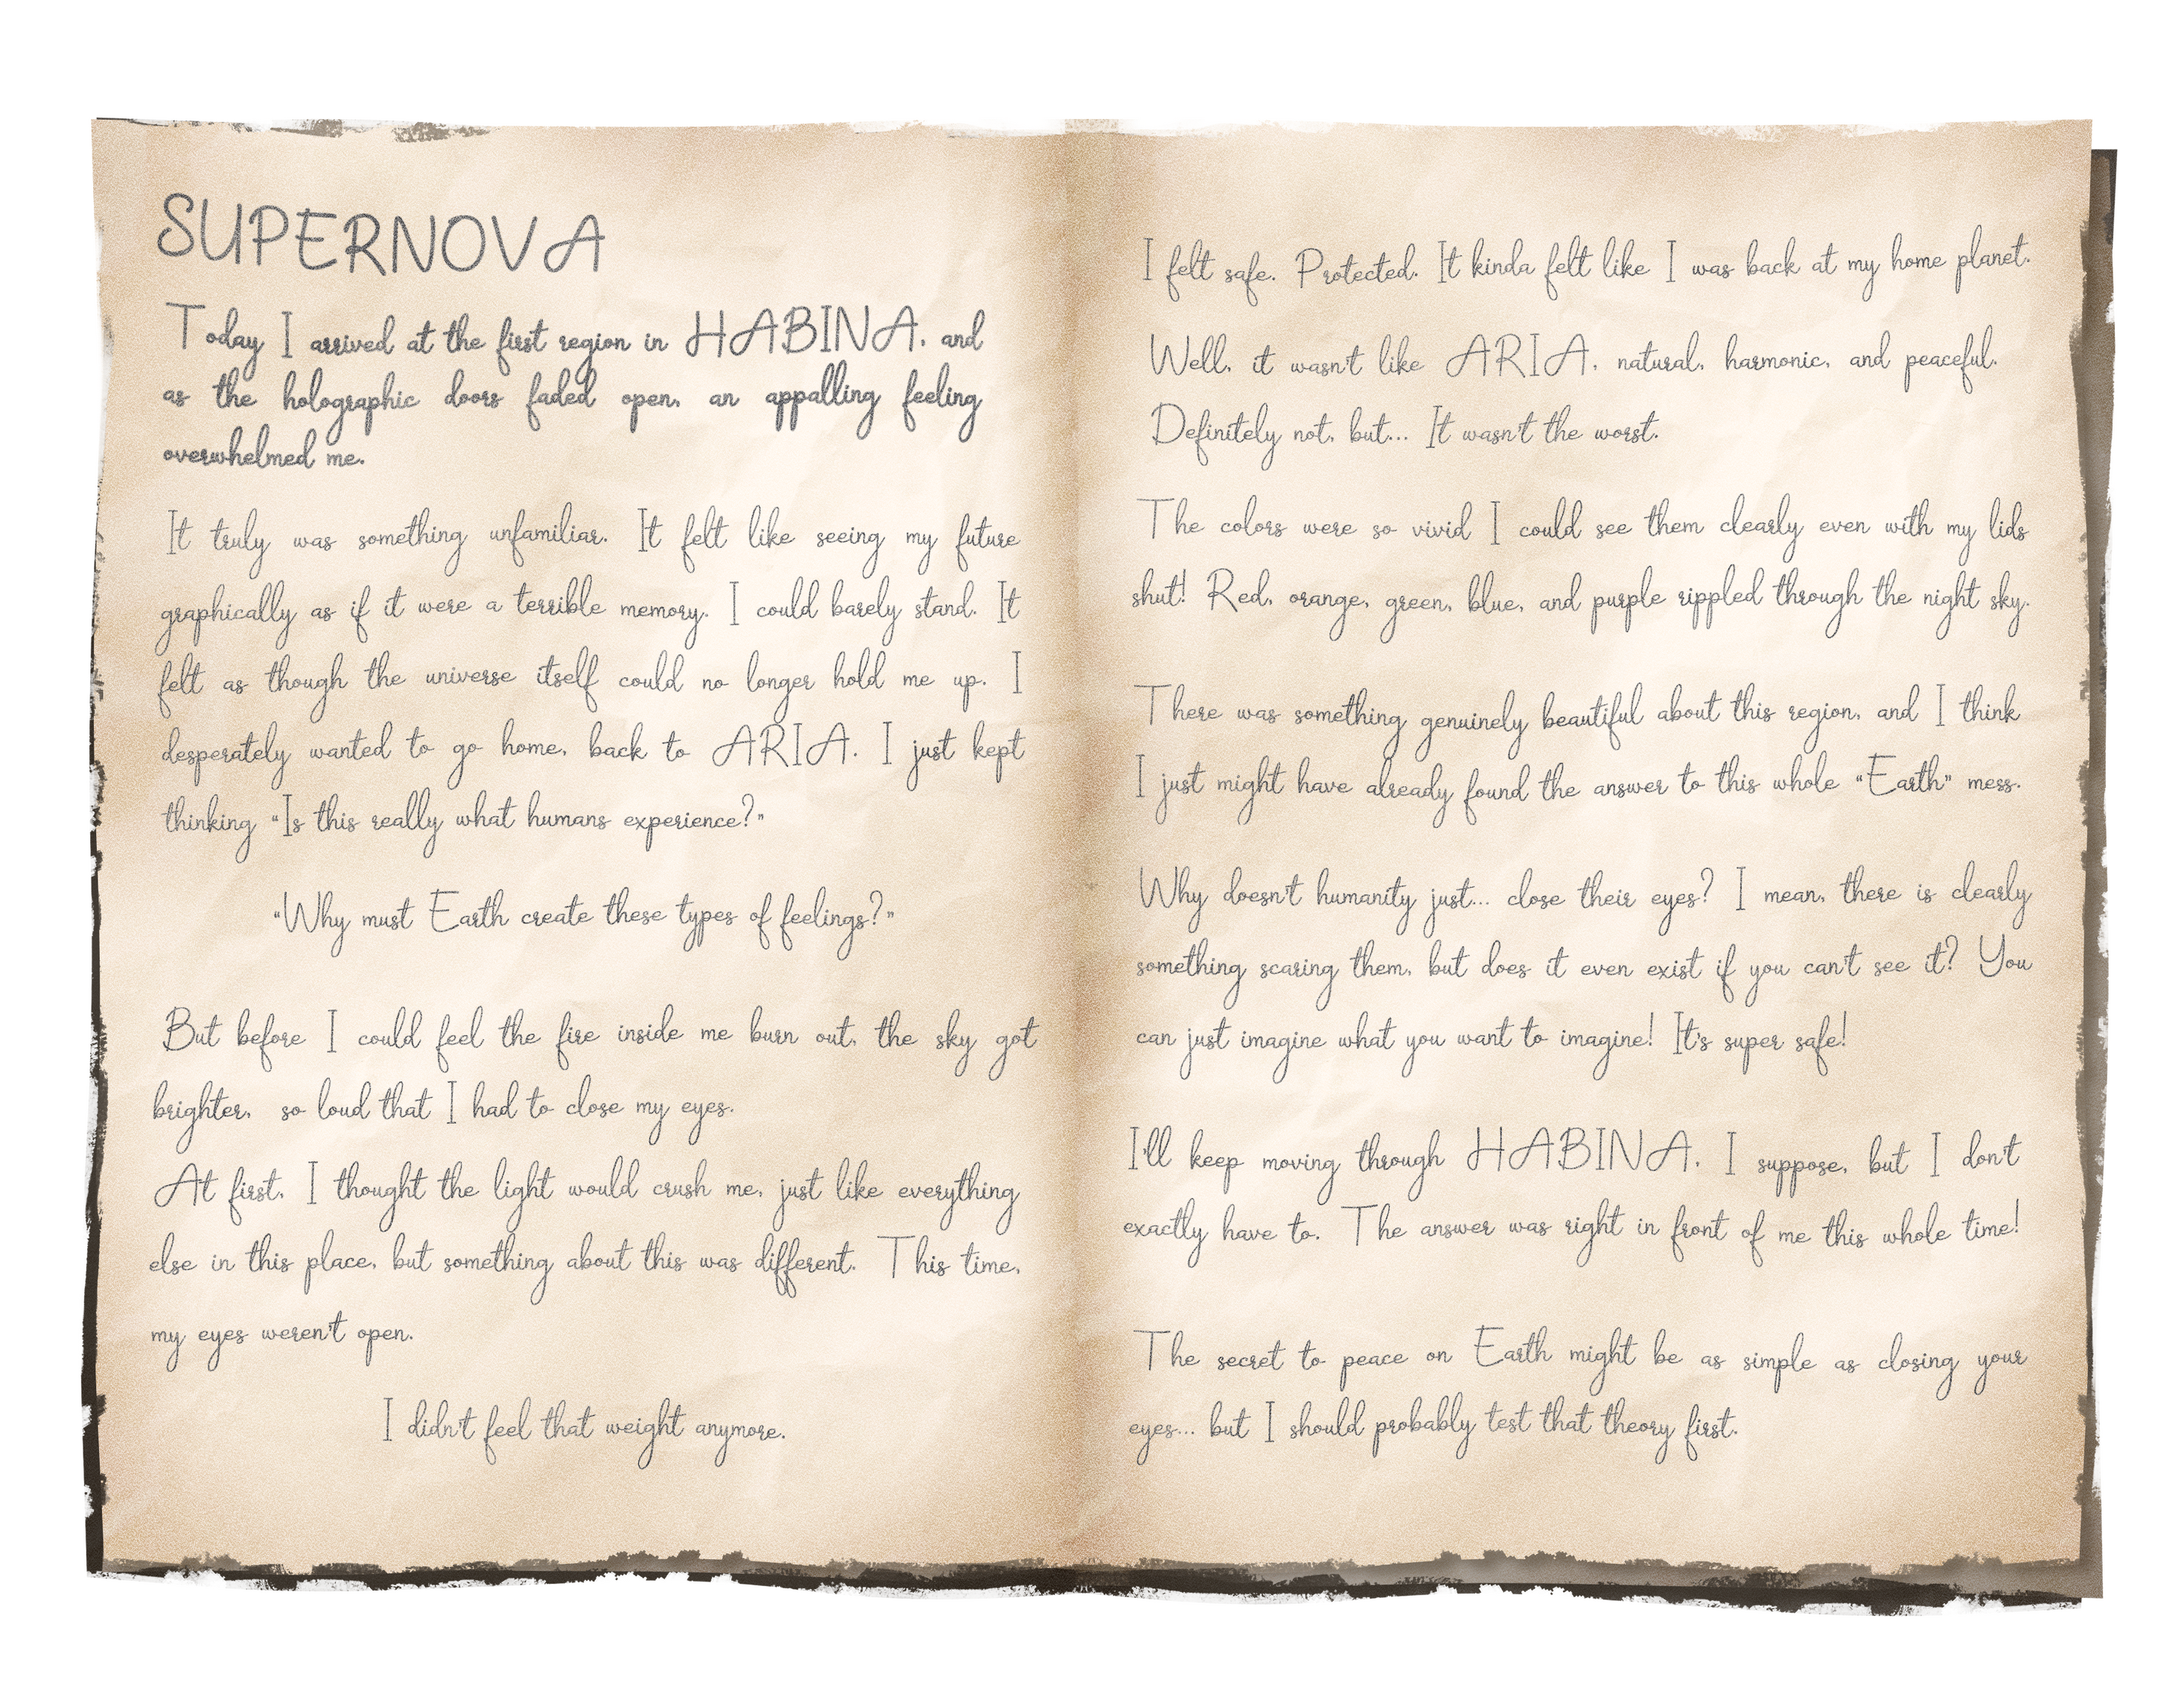 SUPERNOVA
Today I arrived at the first region in HABINA, and
as the holographic doors faded open, an appalling feeling
overwhelmed me.
It truly was something unfamiliar. It felt like seeing my future
graphically as if it were a terrible memory. I could barely stand. It
felt as though the universe itself could no longer hold me up. I
desperately wanted to go home, back to ARIA. I just kept
thinking “Is this really what humans experience?”
“Why must Earth create these types of feelings?”
But before I could feel the fire inside me burn out, the sky got
brighter, so loud that I had to close my eyes.
At first, I thought the light would crush me, just like everything
else in this place, but something about this was different. This time,
my eyes weren't open.
I didn't feel that weight anymore.
I felt safe. Protected. It kinda felt like I was back at my home planet.
Well, it wasn't like ARIA, natural, harmonic, and peaceful.
Definitely not, but... It wasn't the worst.
The colors were so vivid I could see them clearly even with my lids
shut! Red, orange, green, blue, and purple rippled through the night sky.
There was something genuinely beautiful about this region, and I think
I just might have already found the answer to this whole “Earth” mess.
Why doesn't humanity just... close their eyes? I mean, there is clearly
something scaring them, but does it even exist if you can't see it? You
can just imagine what you want to imagine! It's super safe!
I'll keep moving through HABINA, I suppose, but I don't
exactly have to. The answer was right in front of me this whole time!
The secret to peace on Earth might be as simple as closing your
eyes... but I should probably test that theory first.